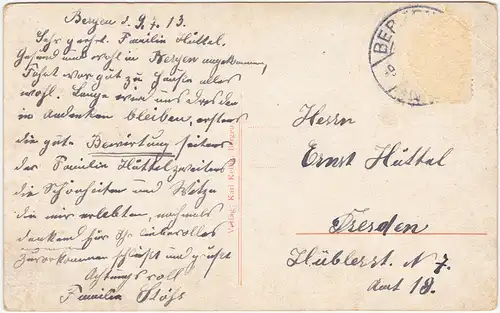 Bergen d. 9.7.13.
Sehr geehrt. Familie Hüttel.
Gesund und wohl in Bergen angekommen,
Fahrt war gut zu Hause alles
wohl. Lange wird uns Dresden
in Andenken bleiben, erstens
die gute Bewirtung seitens
der Familie Hüttel zweitens
die Schönheiten und Witze
die wir erlebten, nochmals
dankend für Ihr liebevolles
Zuvorkommen schließt und grüßt
Achtungsvoll
Familie
Verlag: Karl
BERGEN
Herrn
Ernst Hüttel
Dresden
Hüblerst. N 7.
Amt 18.